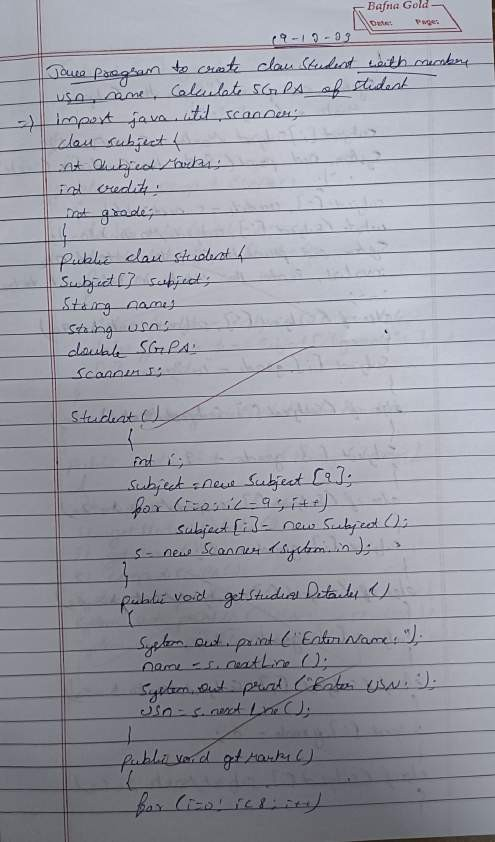 Bafna Gold
Date: Page:
19-12-23
Java program to create class Student with members
usn, name, Calculate SGPA of student
=> import java.util.scanner;
class subject {
int Subject Marks;
int credits;
int grade;
}
public class student {
Subject[] subject;
String name;
String usn;
double SGPA;
Scanner s;
Student()
{
int i;
Subject = new Subject [9];
for (i=0; i<=9; i++)
subject[i] = new Subject ();
s = new Scanner (System.in);
}
public void getStudent Details ()
{
System.out.print ("Enter Name: ");
name = s.nextLine ();
System.out.print ("Enter USN: ");
usn = s.next Line();
}
public void get Marks()
{
for (i=0; i<8; i++)